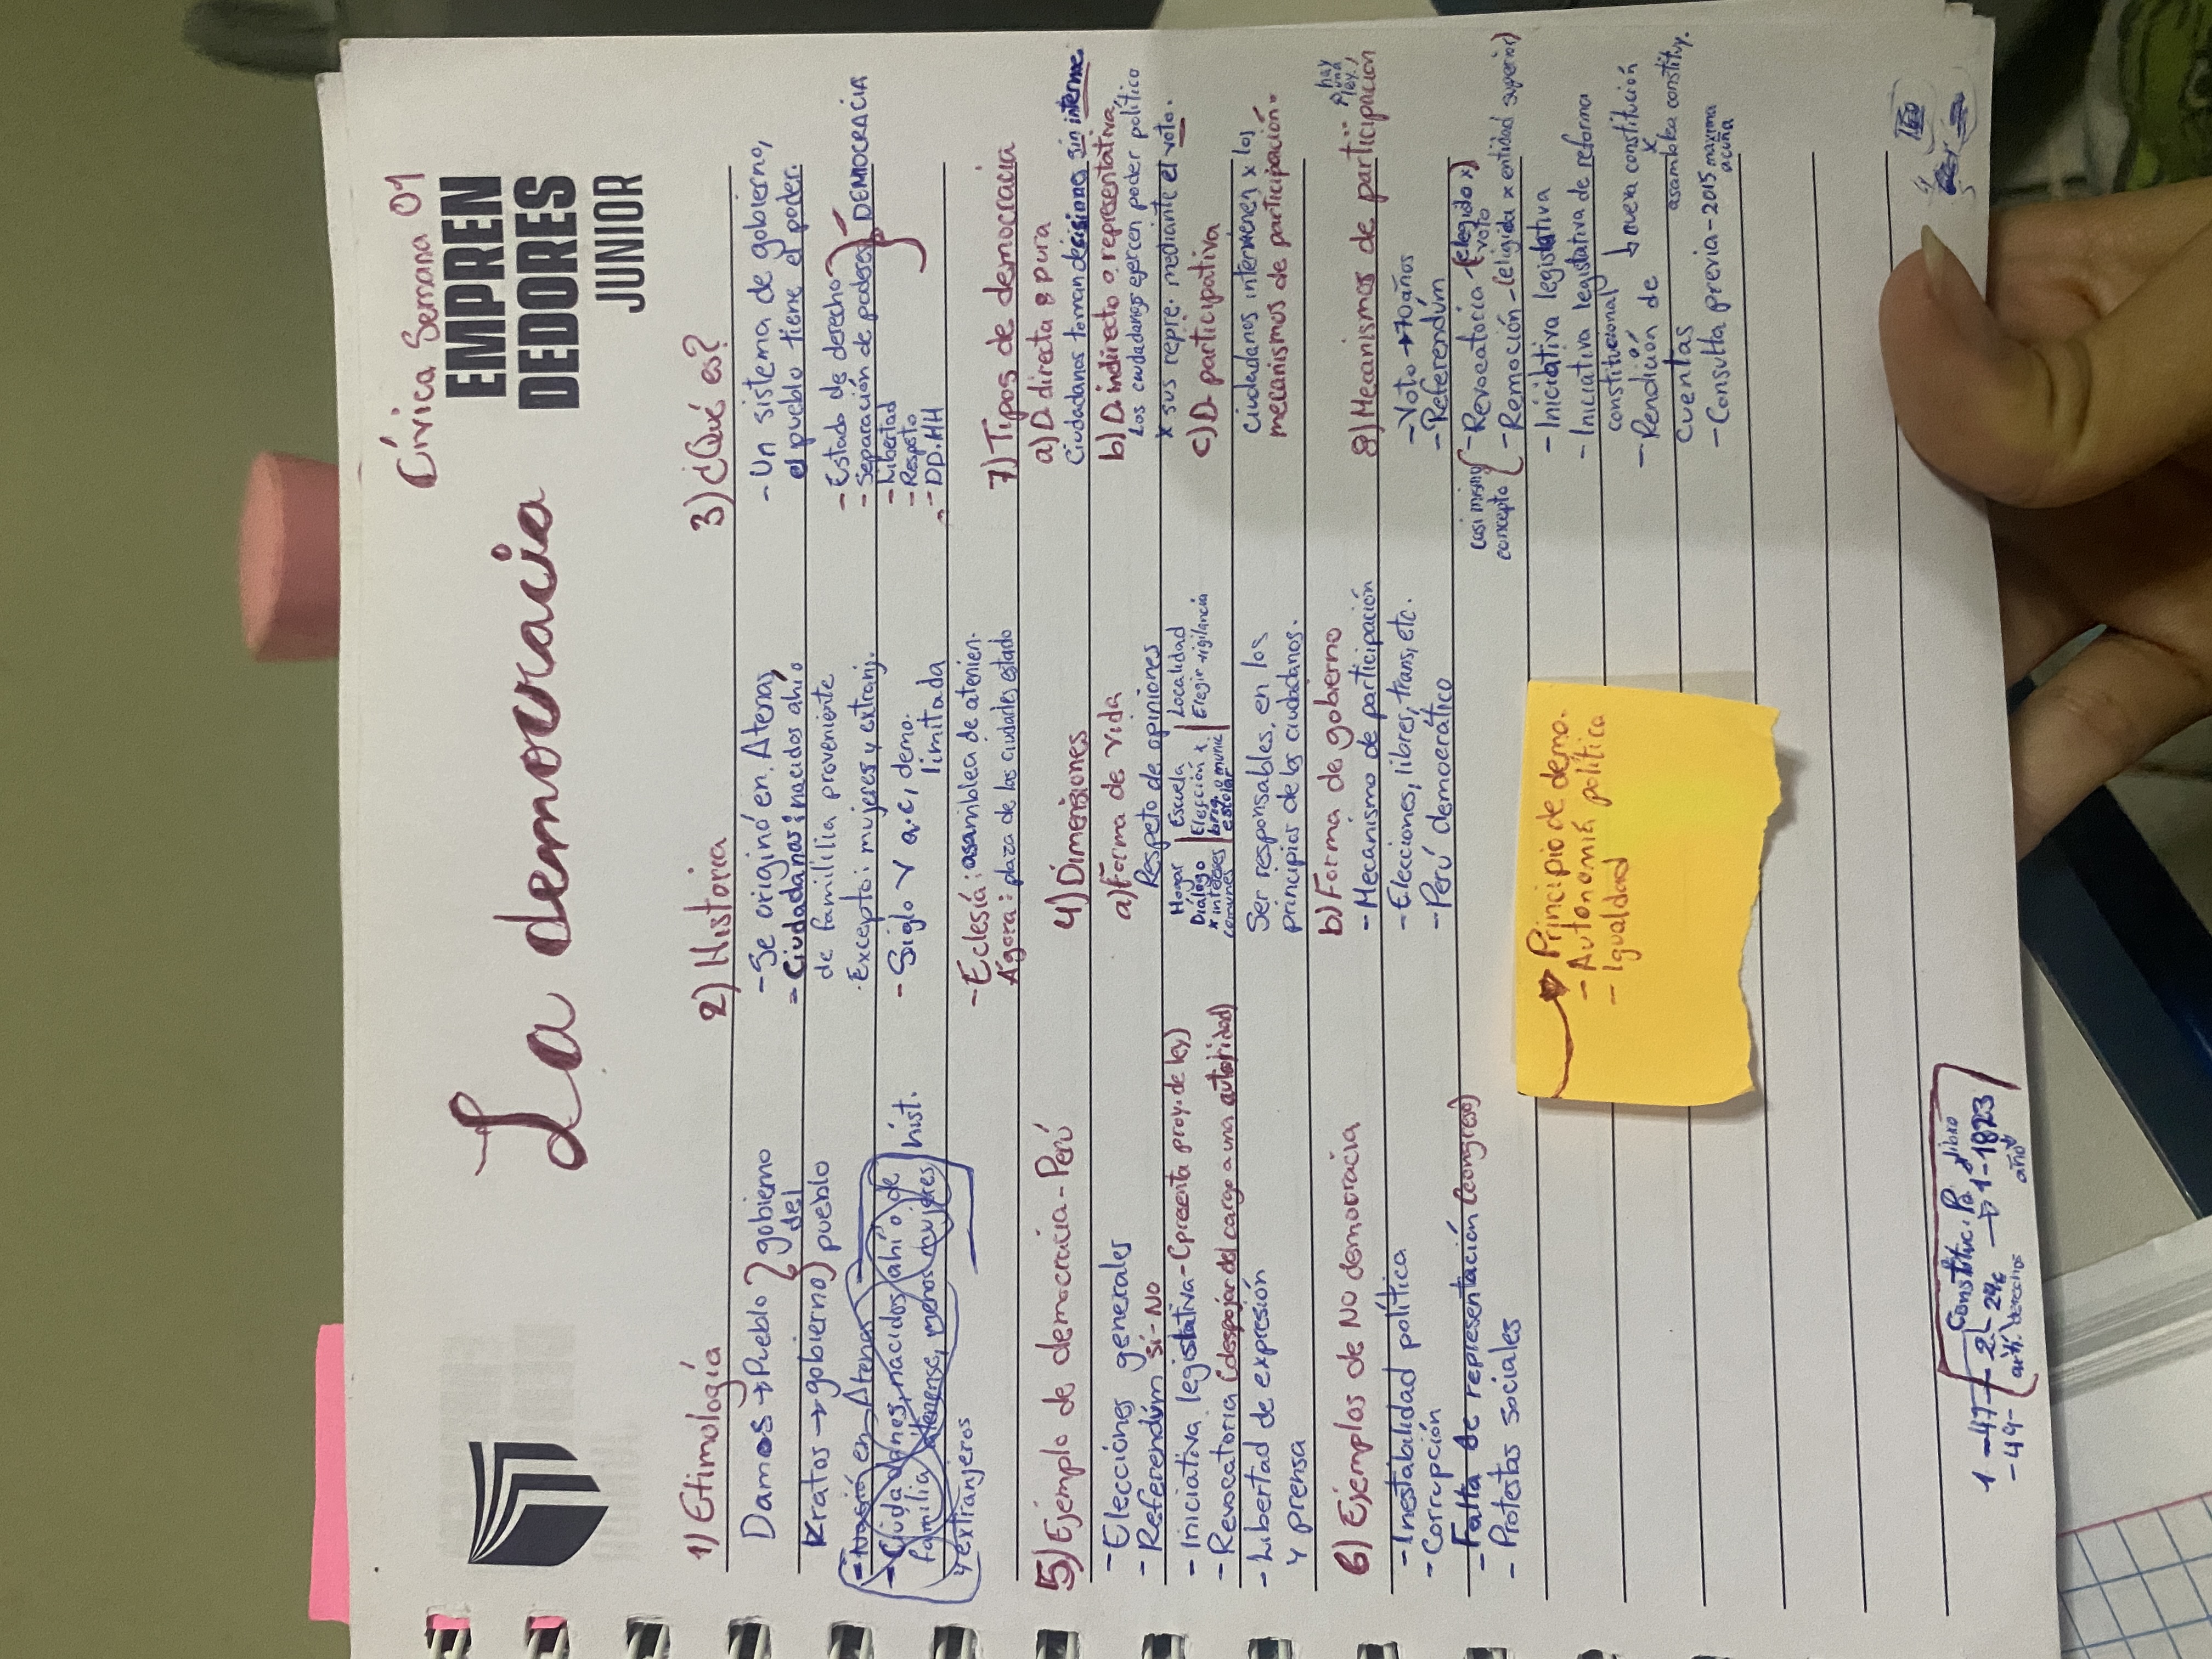 Cívica Semana 01
EMPREN
DEDORES
JUNIOR
La democracia
1) Etimología
Damos → Pueblo
Kratos → gobierno
gobierno
del
pueblo
- Nació en Atenas
- Ciudadanos, nacidos ahí o de
familia atenense, menos mujeres
y extranjeros
hist.
2) Historia
- Se originó en Atenas,
- Ciudadanos: nacidos ahí o
de famililia proveniente
· Excepto: mujeres y extranj.
- Siglo V a.c, demo.
limitada
- Eclesía: asamblea de atenien-
Ágora: plaza de las ciudades estado
3) ¿Qué es?
- Un sistema de gobierno,
el pueblo tiene el poder.
- Estado de derecho
- Separación de poderes
- Libertad
- Respeto
- DD.HH
DEMOCRACIA
4) Dimensiones
a) Forma de vida
Respeto de opiniones
Hogar
Diálogo
x intereses
comunes
Escuela
Elección x
brig. o munic
escolar
Localidad
Elegir-vigilancia
Ser responsables, en los
principios de los ciudadanos.
b) Forma de gobierno
- Mecanismo de participación
- Elecciones, libres, trans, etc.
- Perú democrático
5) Ejemplo de democracia - Perú
- Elecciones generales
- Referendúm sí - No
- Iniciativa legistativa - (presenta proy. de ley)
- Revocatoria (despojar del cargo a una autoridad)
- Libertad de expresión
y prensa
6) Ejemplos de No democracia
- Inestabilidad política
- Corrupción
- Falta de representación (congreso)
- Protestas sociales
7) Tipos de democracia
a) D. directa o pura
Ciudadanos toman decisiones sin interme.
b) D. indirecto o representativa
Los ciudadanos ejercen poder político
x sus repre. mediante el voto.
c) D. participativa
Ciudadanos intervienen x los
mecanismos de participación.
8) Mecanismos de participación
hay
una
- Voto → 70 años
- Referendúm
- Revocatoria (elegido x)
voto
- Remoción - (eligida x entidad superior)
casi mismo
concepto
- Iniciativa legistativa
- Iniciativa legistativa de reforma
constitucional
nueva constitución
x
asamblea constituy.
- Rendición de
cuentas
- Consulta previa - 2015 máxima
acuña
Principio de demo.
- Autonomía política
- Igualdad
Constituc. Pe
libro
1 - 47 - 2
24
1 - 1823
año
- 49 -
art. derechos